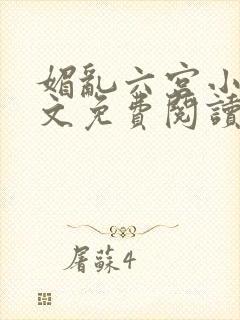 媚亂六宮小
文免費閱讀
屠蘇4